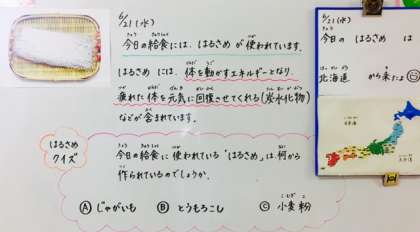 6/21(水)
今日の給食には、はるさめ が 使われています。
はるさめ には、体を動かすエネルギーとなり、
疲れた体を元気に回復させてくれる(炭水化物)
などが 含まれています。
はるさめ
クイズ
今日の給食に 使われている「はるさめ」は、何から
作られているのでしょうか。
Ⓐ じゃがいも
Ⓑ とうもろこし
Ⓒ 小麦粉
6/21(水)
今日の はるさめ は
北海道 から来たよ